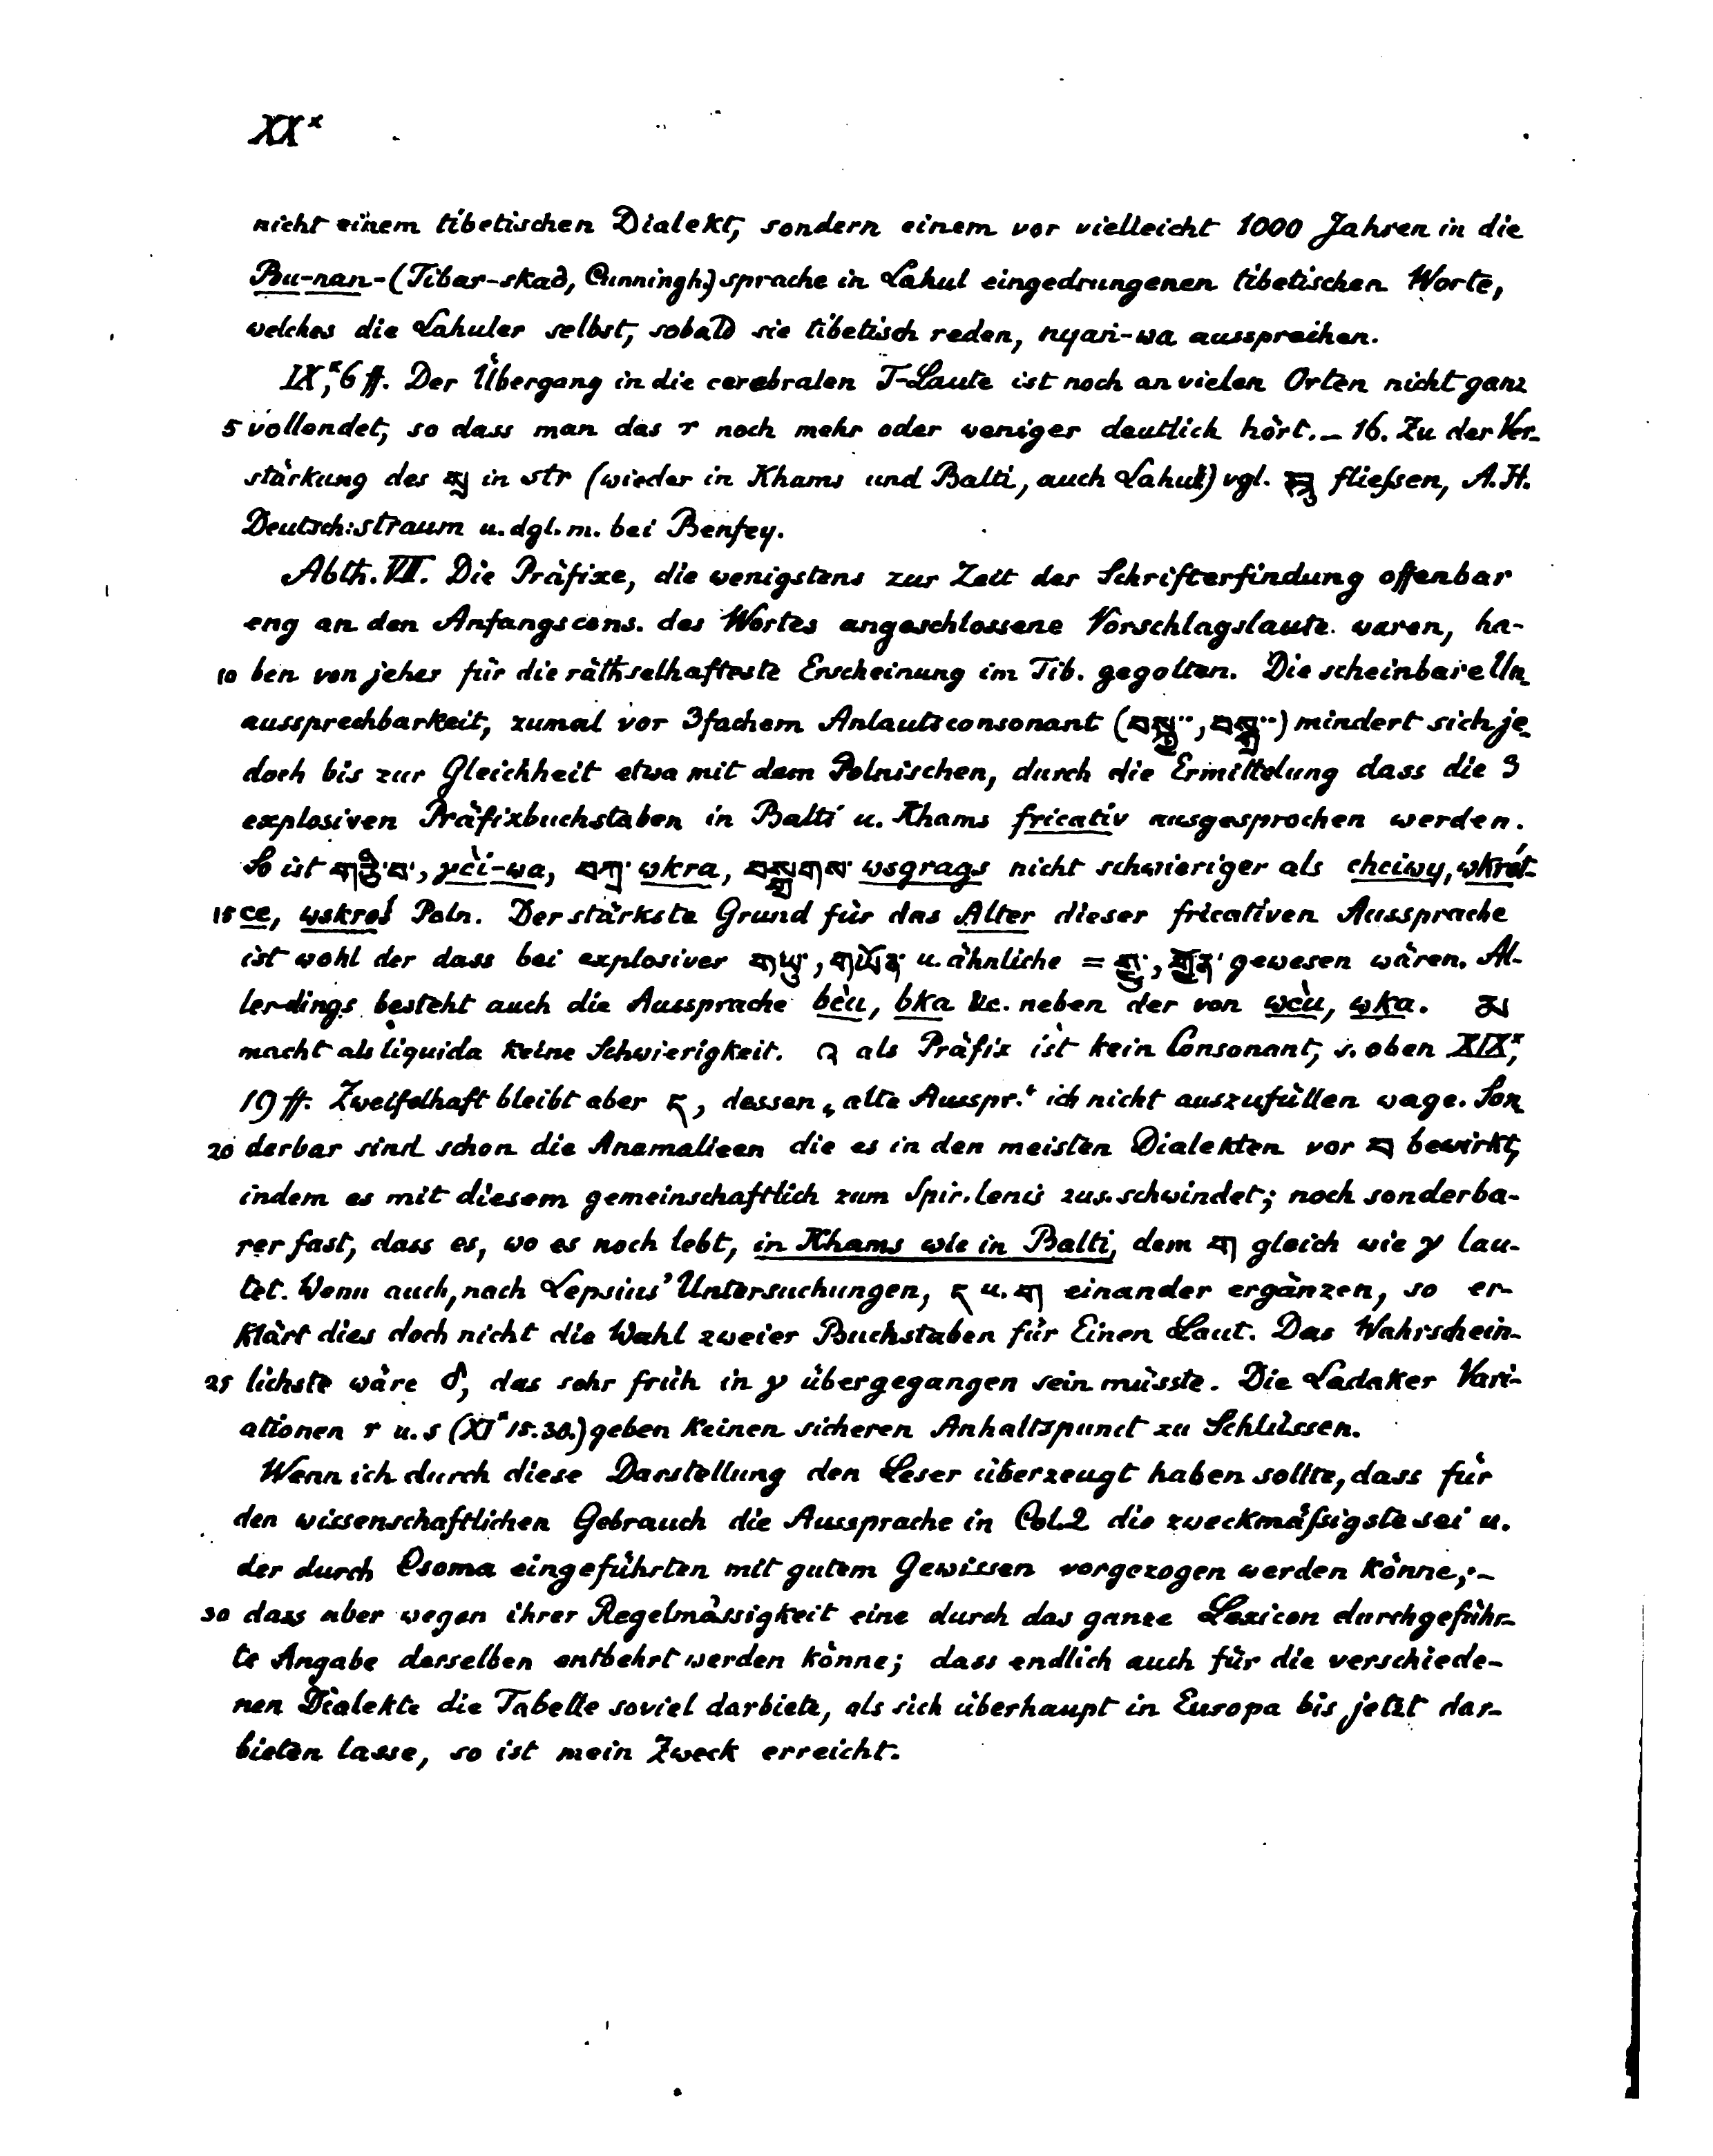 XXˣ
nicht einem tibetischen Dialekt, sondern einem vor vielleicht 1000 Jahren in die
Bu-nan-(Tibar-skad, Cunningh.) sprache in Lahul eingedrungenen tibetischen Worte,
welches die Lahuler selbst, sobald sie tibetisch reden, nyari-wa aussprechen.
IXˣ, 6 ff. Der Übergang in die cerebralen T-Laute ist noch an vielen Orten nicht ganz
5 vollendet, so dass man das r noch mehr oder weniger deutlich hört. – 16. Zu der Ver-
stärkung des སྲ in str (wieder in Khams und Balti, auch Lahul) vgl. fließen, A. H.
Deutsch: straum u. dgl. m. bei Benfey.
Abth. VII. Die Präfixe, die wenigstens zur Zeit der Schrifterfindung offenbar
eng an den Anfangscons. des Wortes angeschlossene Vorschlagslaute waren, ha-
10 ben von jeher für die räthselhafteste Erscheinung im Tib. gegolten. Die scheinbare Un-
aussprechbarkeit, zumal vor 3fachem Anlautsconsonant (བསྐྱ··, བསྒྲ··) mindert sich je-
doch bis zur Gleichheit etwa mit dem Polnischen, durch die Ermittelung dass die 3
explosiven Präfixbuchstaben in Balti u. Khams fricativ ausgesprochen werden.
So ist གཅི་བ་, γc̀i-wa, བཀྲ་ wkra, བསྒྲགས་ wsgrags nicht schwieriger als chciwy, wkrót-
15 ce, wskroś Poln. Der stärkste Grund für das Alter dieser fricativen Aussprache
ist wohl der dass bei explosiver གཡུ་, གཡོན་ u. ähnliche = གྱུ་, གྱོན་ gewesen wären. Al-
lerdings besteht auch die Aussprache bc̀u, bka &c. neben der von wc̀u, wka. མ
macht als liquida keine Schwierigkeit. འ als Präfix ist kein Consonant, s. oben XIXˣ,
19 ff. Zweifelhaft bleibt aber ད, dessen „alte Ausspr.“ ich nicht auszufüllen wage. Son-
20 derbar sind schon die Anamalieen die es in den meisten Dialekten vor བ bewirkt,
indem es mit diesem gemeinschaftlich zum Spir. lenis zus. schwindet; noch sonderba-
rer fast, dass es, wo es noch lebt, in Khams wie in Balti, dem ག gleich wie γ lau-
tet. Wenn auch, nach Lepsius' Untersuchungen, ད u. ག einander ergänzen, so er-
klärt dies doch nicht die Wahl zweier Buchstaben für Einen Laut. Das Wahrschein-
25 lichste wäre δ, das sehr früh in γ übergegangen sein müsste. Die Ladaker Vari-
ationen r u. s (XIˣ 15. 30.) geben keinen sicheren Anhaltspunct zu Schlüssen.
Wenn ich durch diese Darstellung den Leser überzeugt haben sollte, dass für
den wissenschaftlichen Gebrauch die Aussprache in Col. 2 die zweckmäßigste sei u.
der durch Csoma eingeführten mit gutem Gewissen vorgezogen werden könne; –
30 dass aber wegen ihrer Regelmässigkeit eine durch das ganze Lexicon durchgeführ-
te Angabe derselben entbehrt werden könne; dass endlich auch für die verschiede-
nen Dialekte die Tabelle soviel darbiete, als sich überhaupt in Europa bis jetzt dar-
bieten lasse, so ist mein Zweck erreicht.